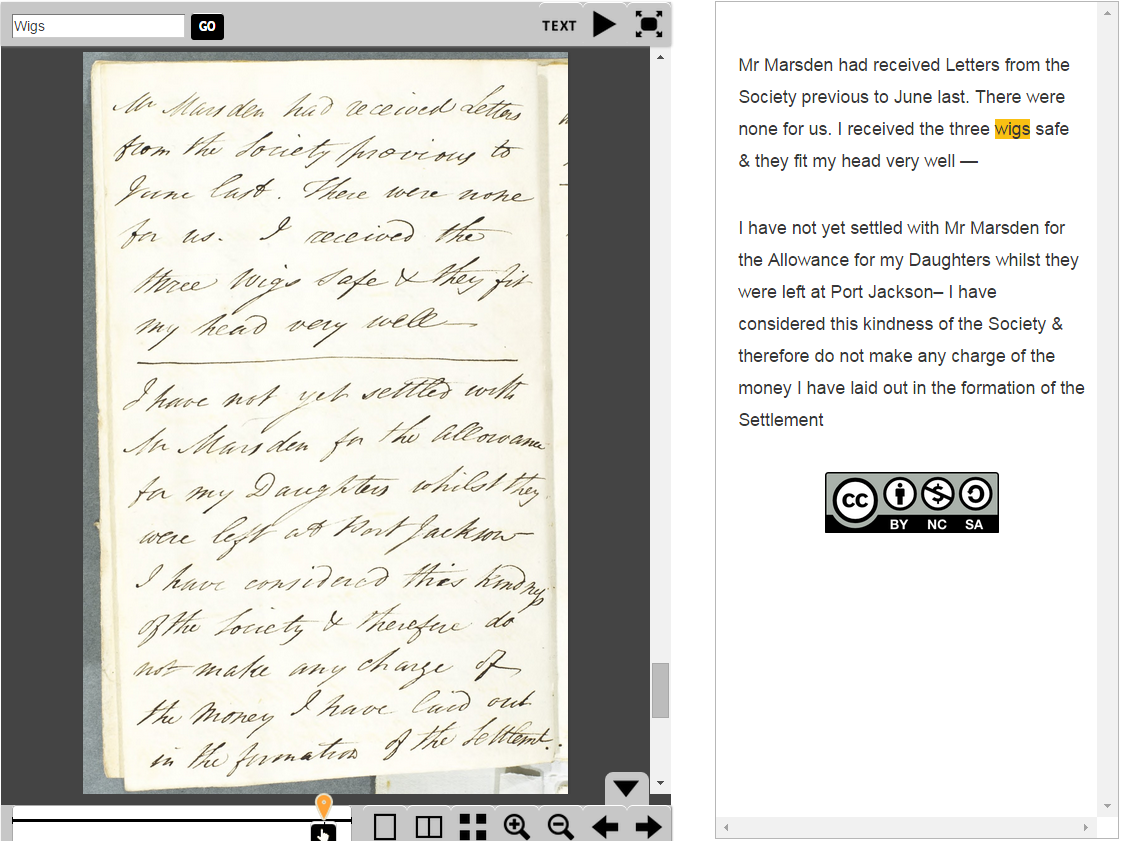 Wigs
GO
TEXT
Mr Marsden had received Letters
from the Society previous to
June last. There were none
for us. I received the
three Wigs safe & they fit
my head very well—
I have not yet settled with
Mr Marsden for the allowance
for my Daughters whilst they
were left at Port Jackson—
I have considered this kindness
of the Society & therefore do
not make any charge of
the money I have laid out
in the formation of the Settlemt.
Mr Marsden had received Letters from the
Society previous to June last. There were
none for us. I received the three wigs safe
& they fit my head very well —
I have not yet settled with Mr Marsden for
the Allowance for my Daughters whilst they
were left at Port Jackson– I have
considered this kindness of the Society &
therefore do not make any charge of the
money I have laid out in the formation of the
Settlement
cc
BY NC SA